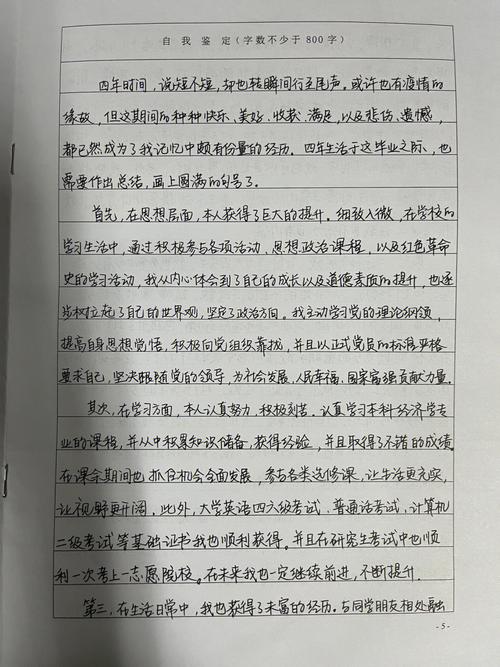 自 我 鉴 定(字数不少于 800 字)
四年时间，说短不短，却也转瞬间行至尾声。或许也有疫情的
缘故，但这期间的种种快乐、美好、收获、满足，以及悲伤、遗憾，
都已然成为了我记忆中颇有份量的经历。四年生活于这毕业之际，也
需要作出总结，画上圆满的句号了。
首先，在思想层面，本人获得了巨大的提升。细致入微，在学校的
学习生活中，通过积极参与各项活动、思想政治课程，以及红色革命
史的学习活动，我从内心体会到了自己的成长以及道德素质的提升，也逐
步树立起了自己的世界观，坚定了政治方向。我主动学习党的理论纲领，
提高自身思想觉悟，积极向党组织靠拢，并且以正式党员的标准严格
要求自己，坚决跟随党的领导，为社会发展、人民幸福、国家富强贡献力量。
其次，在学习方面，本人认真努力，积极刻苦。认真学习本科经济学专
业的课程，并从中积累知识储备，获得经验，并且取得了不错的成绩。
在课余期间也抓住机会全面发展，参与各类选修课，让生活更充实，
让视野更开阔。此外，大学英语四六级考试、普通话考试、计算机
二级考试等基础证书我也顺利获得。并且在研究生考试中也顺
利一次考上一志愿院校。在未来我也一定继续前进，不断提升。
第三，在生活日常中，我也获得了丰富的经历。与同学朋友相处融
- 5 -